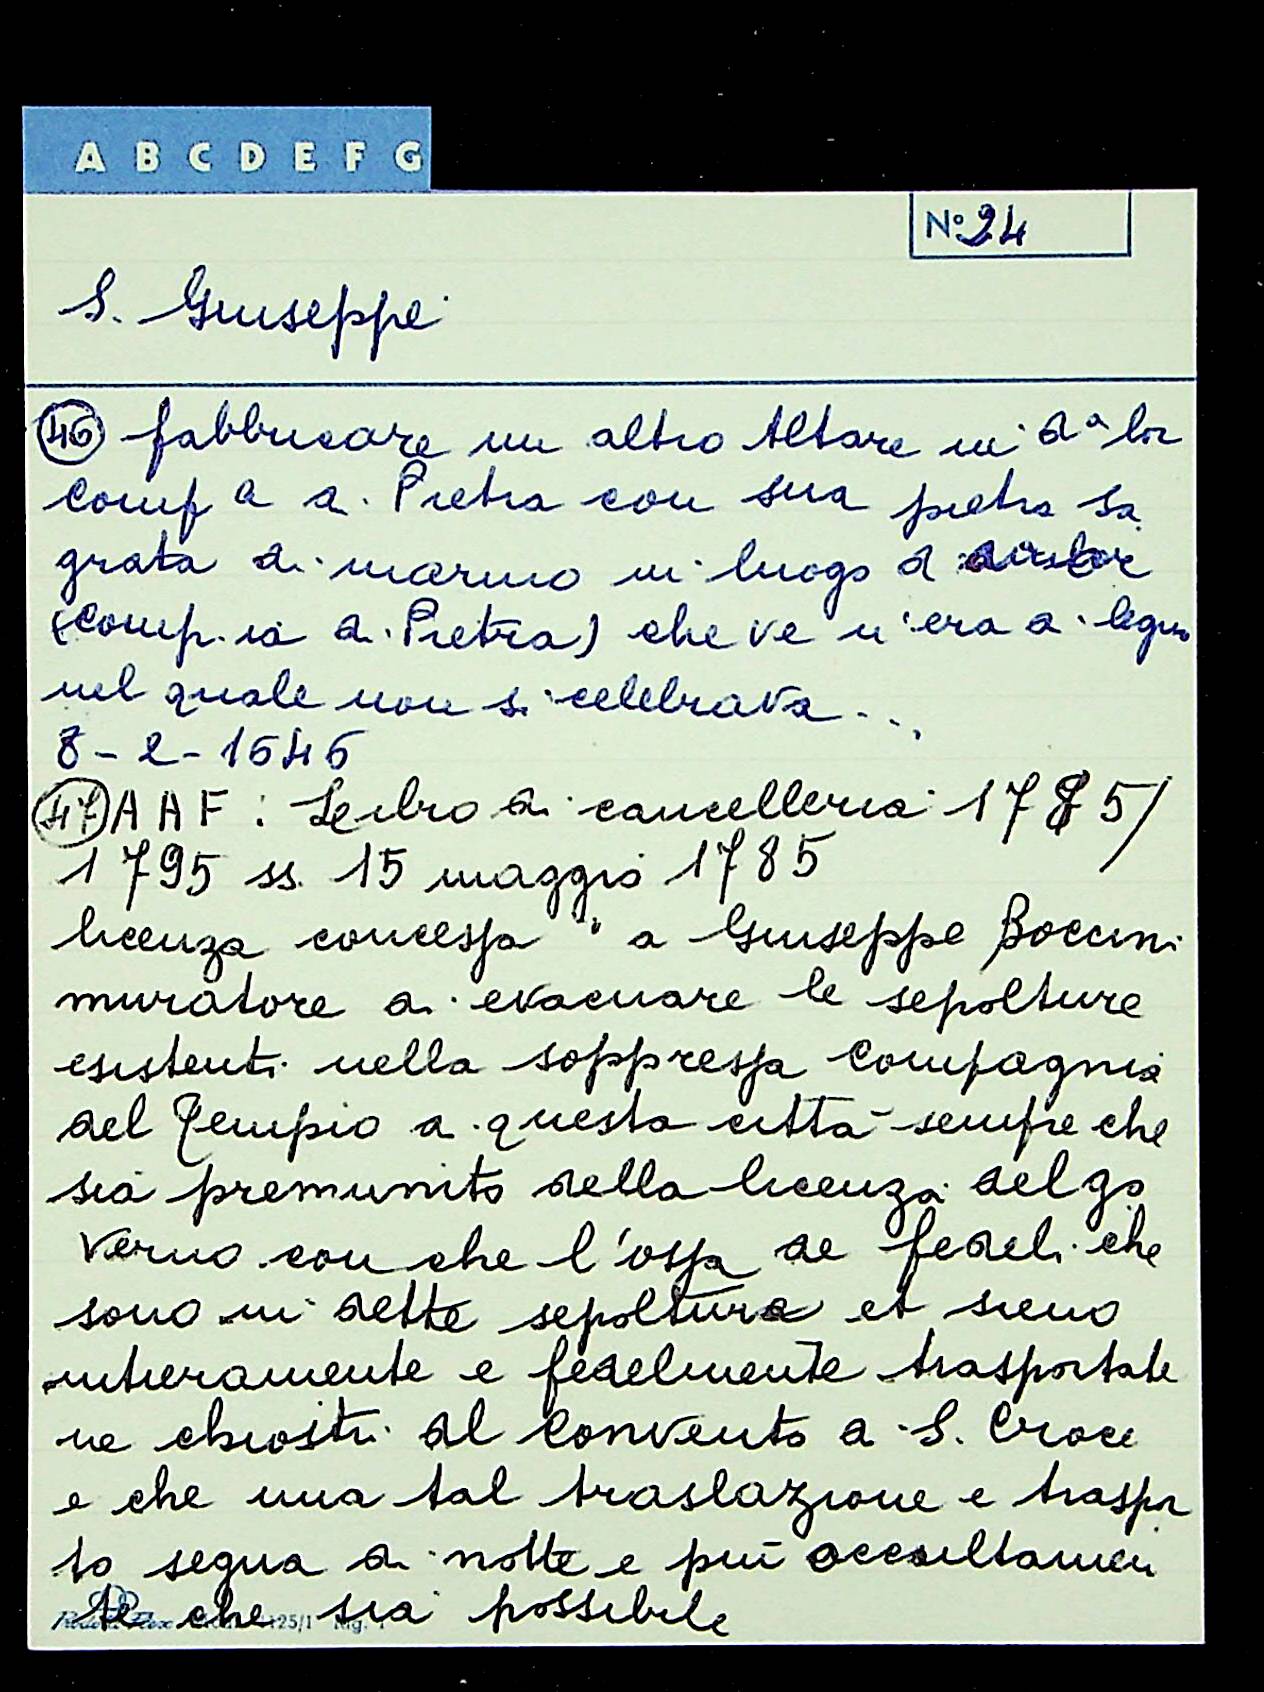 A B C D E F G
N° 24
S. Giuseppe
46 fabbricare un altro Altare in d.ª lor
Comp a di Pietra con sua pietra sa
grata di marmo in luogo d
(comp.ia di Pietra) che ve n'era di legno
nel quale non si celebrava...
8-2-1646
47 AAF: Libro di cancelleria 1785/
1795 ss. 15 maggio 1785
licenza concessa " a Giuseppe Boccini
muratore di evacuare le sepolture
esistenti nella soppressa Compagnia
del Tempio di questa città sempre che
sia premunito della licenza del go
verno con che l'ossa de fedeli che
sono in dette sepolture et sieno
intieramente e fedelmente trasportate
ne chiostri del Convento di S. Croce
e che una tal traslazione e traspor
to segua di notte e più occultamen
te che sia possibile